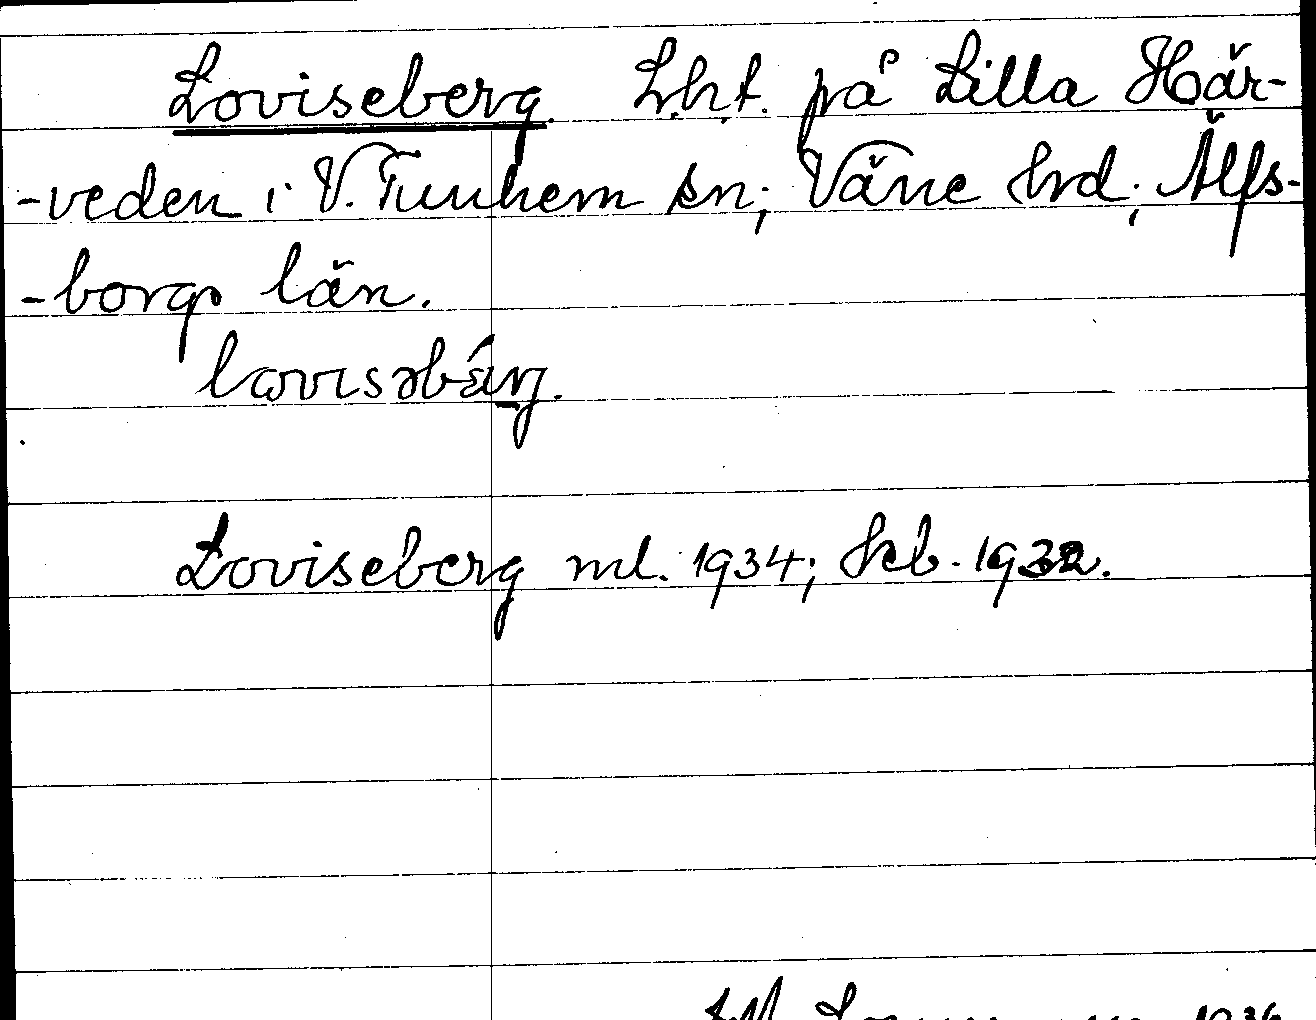 Loviseberg. Lht. på Lilla Här-
-veden i V. Tunhem sn; Väne hrd; Älfs-
-borgs län.
lovisəbærj.
Loviseberg ml. 1934; Seb. 1932.
1936